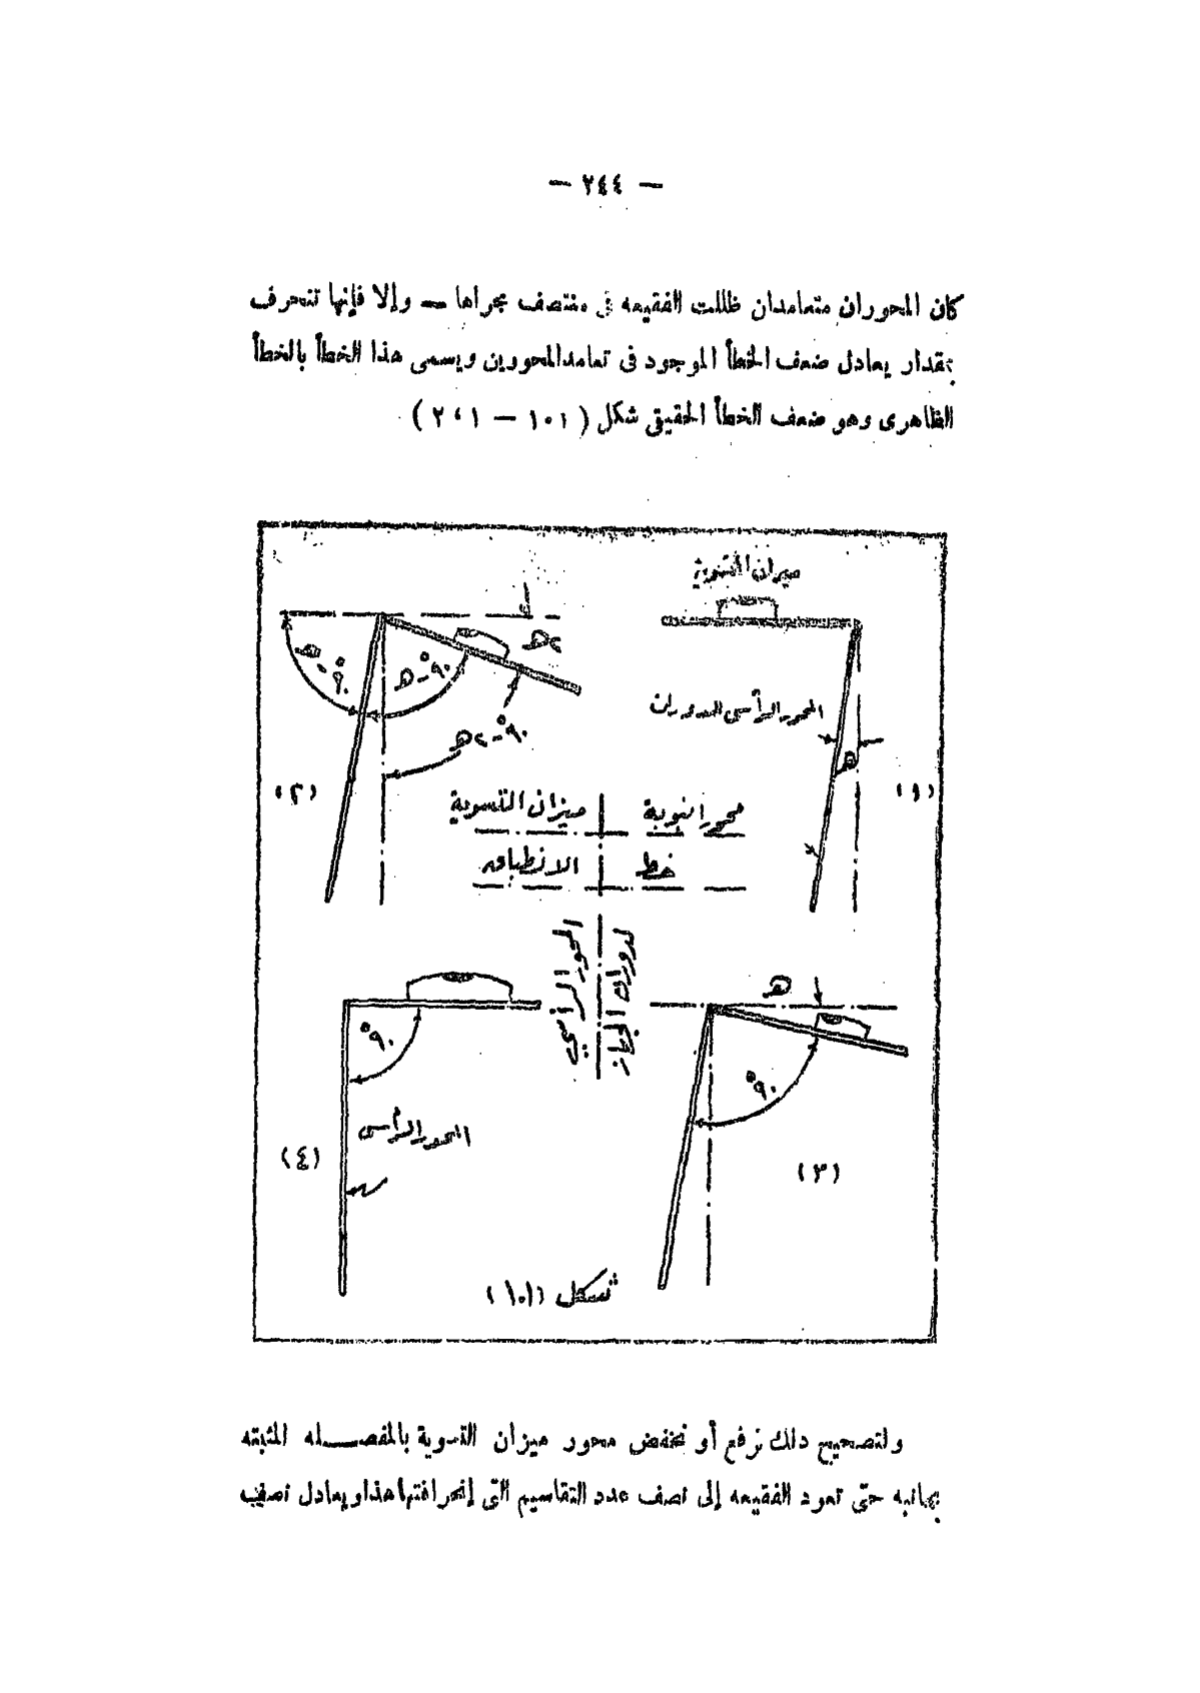 — ٢٤٤ —
كان المحوران متعامدان ظللت الفقيعه فى منتصف مجراها — وإلا فإنها تنحرف
بمقدار يعادل ضعف الخطأ الموجود فى تعامدالمحورين ويسمى هذا الخطأ بالخطأ
الظاهرى وهو ضعف الخطأ الحقيقى شكل (١٠١ — ٢٤١)
ميزان التسوية
المحور الرأسى للدوران
ه
(١)
٢ه
٩٠° - ه
٩٠° - ه
٩٠° - ٢ه
(٢)
محور انبوبة ميزان التسوية
خط الانطباق
المحور الرأسي
لدوران الجهاز
ه
٩٠°
(٣)
٩٠°
المحور الرأسى
(٤)
شكل (١٠١)
ولتصحيح ذلك نرفع أو نخفض محور ميزان التسوية بالمفصله المثبته
بجانبه حتى تعود الفقيعه إلى نصف عدد التقاسيم التى إنحرافتها هذا ويعادل نصف